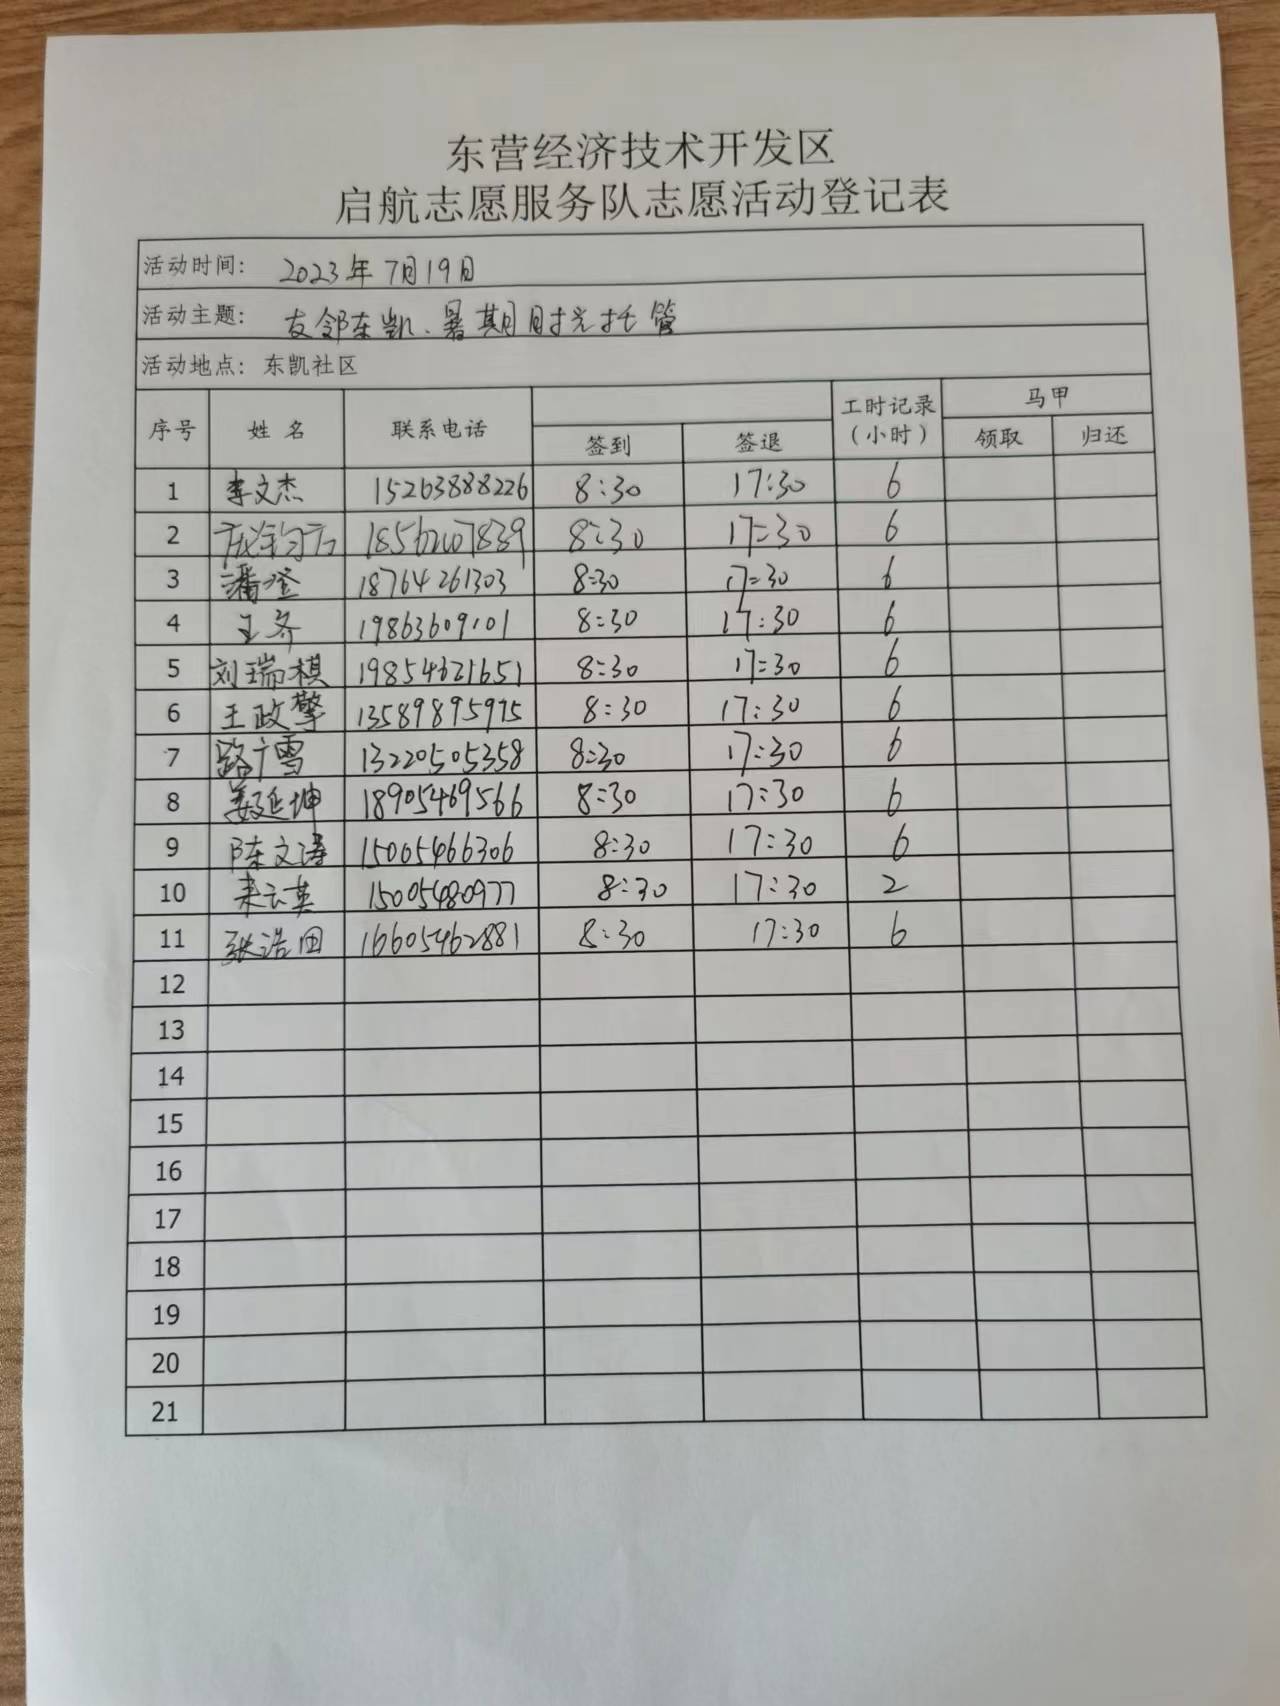 东营经济技术开发区
启航志愿服务队志愿活动登记表
活动时间: 2023年7月19日
活动主题: 友邻东凯、暑期时光托管
活动地点: 东凯社区
序号 姓名 联系电话 签到 签退 工时记录（小时） 马甲 领取 归还
1 李文杰 15263888226 8:30 17:30 6
2 8:30 17:30 6
3 潘登 18764261303 8:30 17:30 6
4 王齐 19863609101 8:30 17:30 6
5 刘瑞棋 19854621651 8:30 17:30 6
6 王政擎 13589895975 8:30 17:30 6
7 路广雪 13220505358 8:30 17:30 6
8 姜延坤 18905469566 8:30 17:30 6
9 陈文涛 15065466306 8:30 17:30 6
10 来云英 15005480977 8:30 17:30 2
11 张浩田 16605462881 8:30 17:30 6
12
13
14
15
16
17
18
19
20
21